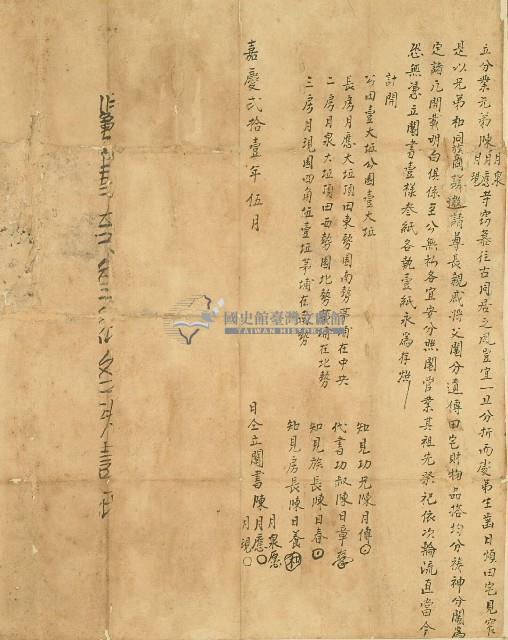 立分業兄弟陳月應月泉月現等窃慕往古同居之風豈宜一旦分折而處弟生齒日煩田宅見窄
是以兄弟和同商議邀請尊長親戚將父鬮分遺傳田宅財物品搭均分於神分鬮為
定請凡開載明白俱係至公無私各宜安分照鬮管業其祖先祭祀依次輪流直當今
恐無憑立鬮書壹樣叁紙各執壹紙永為存照
計開
公田壹大坵公園壹大坵
長房月應大坵頂田東勢園南勢茅埔在中央
二房月泉大坵頂田西勢園北勢茅埔在北勢
三房月現園四角伍壹坵茅埔在南勢
知見功兄陳月傳
代書功叔陳日章
知見族長陳日春
知見房長陳日養
嘉慶弍拾壹年伍月
日仝立鬮書陳月應月泉月現
國史館臺灣文獻館
TAIWAN HISTORICA